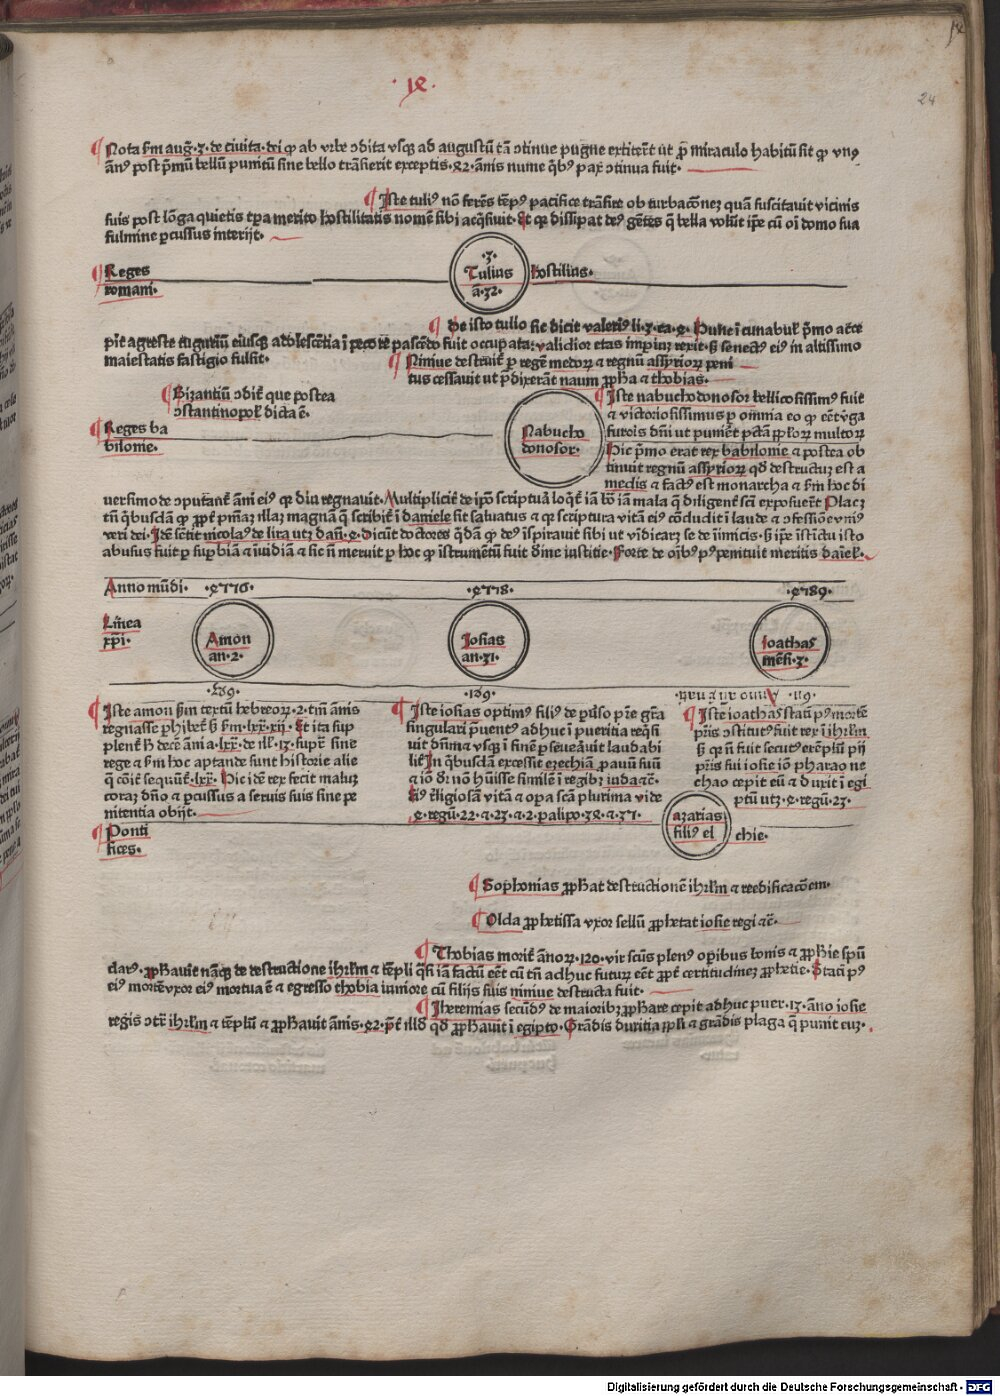 24
¶ Nota ẜm aug⁹·3· de ciuita· dei ꝙ ab vrbe ↄdita vsqꝫ ad augustū tā ↄtinue pugne extiterūt ut ꝓ miraculo habitū sit ꝙ vn⁹
ann⁹ post pͥmū bellū punicū sine bello trāsierit exceptis·42·ānis nume qͥb⁹ pax ↄtinua fuit·
¶ Iste tuli⁹ nō ferēs tēp⁹ pacifice trāsire ob turbacōneꝫ quā suscitauit vicinis
suis post lōga quietis tꝑa merito hostilitatis nomē sibi acqͥsiuit· Et qꝛ dissipat de⁹ gētes q̄ bella volūt ip̄e cū oī domo sua
fulmine ꝑcussus interijt·
¶ Reges
romani·
·3·
Tulius
a·32·
hostilius·
¶ De isto tullo sic dicit valeri⁹ li·3·ca·4· Hunc ī cunabul' pͥmo acce
pit agreste tuguriū eiusqꝫ adolescētia ī pecore pascēdo fuit occupata: validior etas imꝑiuꝫ rexit· ẜ senect⁹ ei⁹ in altissimo
maiestatis fastigio fulsit·
¶ Niniue destruit̄ ꝑ regē medoꝝ ⁊ regnū assyrioꝝ peni
tus cessauit ut p̄dixerāt naum ꝓph̄a ⁊ thobias·
¶ Bizantiū ↄdit̄ que postea
ↄstantinopol' dicta ē·
¶ Reges ba
bilonie·
Nabucho
donosor·
¶ Iste nabuchodonosor bellicosissim⁹ fuit
⁊ victoriosissimus ꝑ omnia eo ꝙ eēt v̄ga
furoris dn̄i ut puniēt pctā ppl'oꝝ multoꝝ
Hic pͥmo erat rex babilonie ⁊ postea ob
tinuit regnū assyrioꝝ qd̄ destructuꝫ est a
medis ⁊ fact⁹ est monarcha ⁊ ẜm hoc di
uersimode ↄputant̄ āni ei⁹ qꝛ diu regnauit· Multiplicit̄ de ip̄o scriptura loqt̄ iā bō iā mala q̄ diligent̄ sci exposuer̄t Placꝫ
tn̄ qͥbusdā ꝙ ꝓpt̄ pͥmaꝫ illaꝫ magnā q̄ scribit̄ ī daniele sit saluatus ⁊ qꝛ scriptura vitā ei⁹ cōcludit ī laude ⁊ ↄfessione vni⁹
veri dei· Idē sētit nicola⁹ de lira utꝫ dan̄·4· Dicūt doctores qͥdā ꝙ de⁹ īspirauit sibi ut vidicarꝫ se de īimicis· ẜ ip̄e īstīctu isto
abusus fuit ꝑ suꝑbiā ⁊ īuidiā ⁊ sic n̄ meruit ꝑ hoc ꝙ īstrumētū fuit diuine iusticie· Forte de oīb⁹ p⁹ penituit meritis daniel'·
Anno mūdi·
·4716·
·4718·
·4789·
Linea
xpi·
Amon
an·2·
Iosias
an·31·
Ioathas
mēs·3·
¶ Iste amon ẜm textū hebreoꝝ·2·tm̄ ānis
regnasse ꝑhibet̄ ẜ ẜm·lxx·xij· Et ita sup
plent̄ ħ decē ānia·lxx·de ill'·12·supͥ sine
rege ⁊ ẜm hoc aptande sunt historie alie
q̄ cōit̄ sequūt̄·lxx· Hic idē rex fecit maluꝫ
coraꝫ dn̄o ⁊ ꝑcussus a seruis suis sine pe
nitentia obijt·
¶ Iste iosias optim⁹ fili⁹ de pͥuso pͥre gr̄a
singulari p̄uent⁹ adhuc ī pueritia req̄si
uit dn̄m ⁊ vsqꝫ ī finē ꝑseuerauit laudabi
lit̄ In qͥbusdā excessit ezechiā ꝓauū suū
⁊ iō dr̄ nō h̄uisse similē ī regibꝫ iuda ⁊c̄·
Ei⁹ t̄ligiosā vitā ⁊ oꝑa scā plurima vide
·4·regū·22·⁊·23·⁊·2·palipo·34·⁊·37·
¶ Iste ioathas statī p⁹ mortē
pr̄is ↄstitut⁹ fuit rex ī ihrl'm
ẜ qꝛ n̄ fuit secut⁹ exēplū pij
pr̄is sui iosie iō pharao ne
chao cepit eū ⁊ duxit ī egi
ptū utꝫ·4·regū·23·
¶ Ponti
fices·
azarias
fili⁹ el
chie·
¶ Sophonias ꝓph̄at destructionē ihrl'm ⁊ reedificacōem·
¶ Olda ꝓphetissa vxor sellū ꝓphetat iosie regi ⁊c̄·
¶ Thobias morit̄ ānoꝝ·120·vir scūs plen⁹ opibus bonis ⁊ ꝓph̄ie spū
clar⁹· ꝓph̄auit nāqꝫ de destructione ihrl'm ⁊ tēpli q̄si iā factū eēt cū tn̄ adhuc futuꝝ eēt ꝓpt̄ certitudineꝫ ꝓphetie· Statī p⁹
ei⁹ mortē vxor ei⁹ mortua ē ⁊ egresso thobia iuniore cū filijs suis niniue destructa fuit·
¶ Iheremias secūd⁹ de maioribꝫ ꝓph̄are cepit adhuc puer·13·āno iosie
regis ↄtͣ ihrl'm ⁊ tēplū ⁊ ꝓph̄auit ānis·42·pͥt̄ illd̄ qd̄ ꝓph̄auit ī egipto· Grādis duritia ppl'i ⁊ grādis plaga q̄ punit euꝫ·
Digitalisierung gefördert durch die Deutsche Forschungsgemeinschaft · DFG